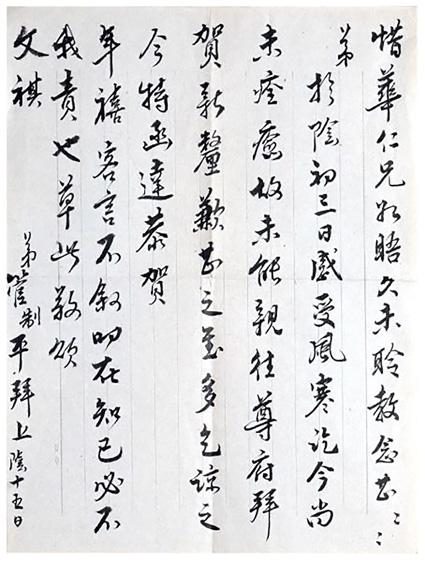 惜華仁兄如晤久未聆教念甚〻〻
弟於陰初三日感受風寒迄今尚
未痊癒故未能親往尊府拜
賀新釐歉甚之至多乞諒之
今特函達恭賀
年禧客言不敘叨在知己必不
我責也草此敬頌
文祺
弟管制平拜上陰十五日